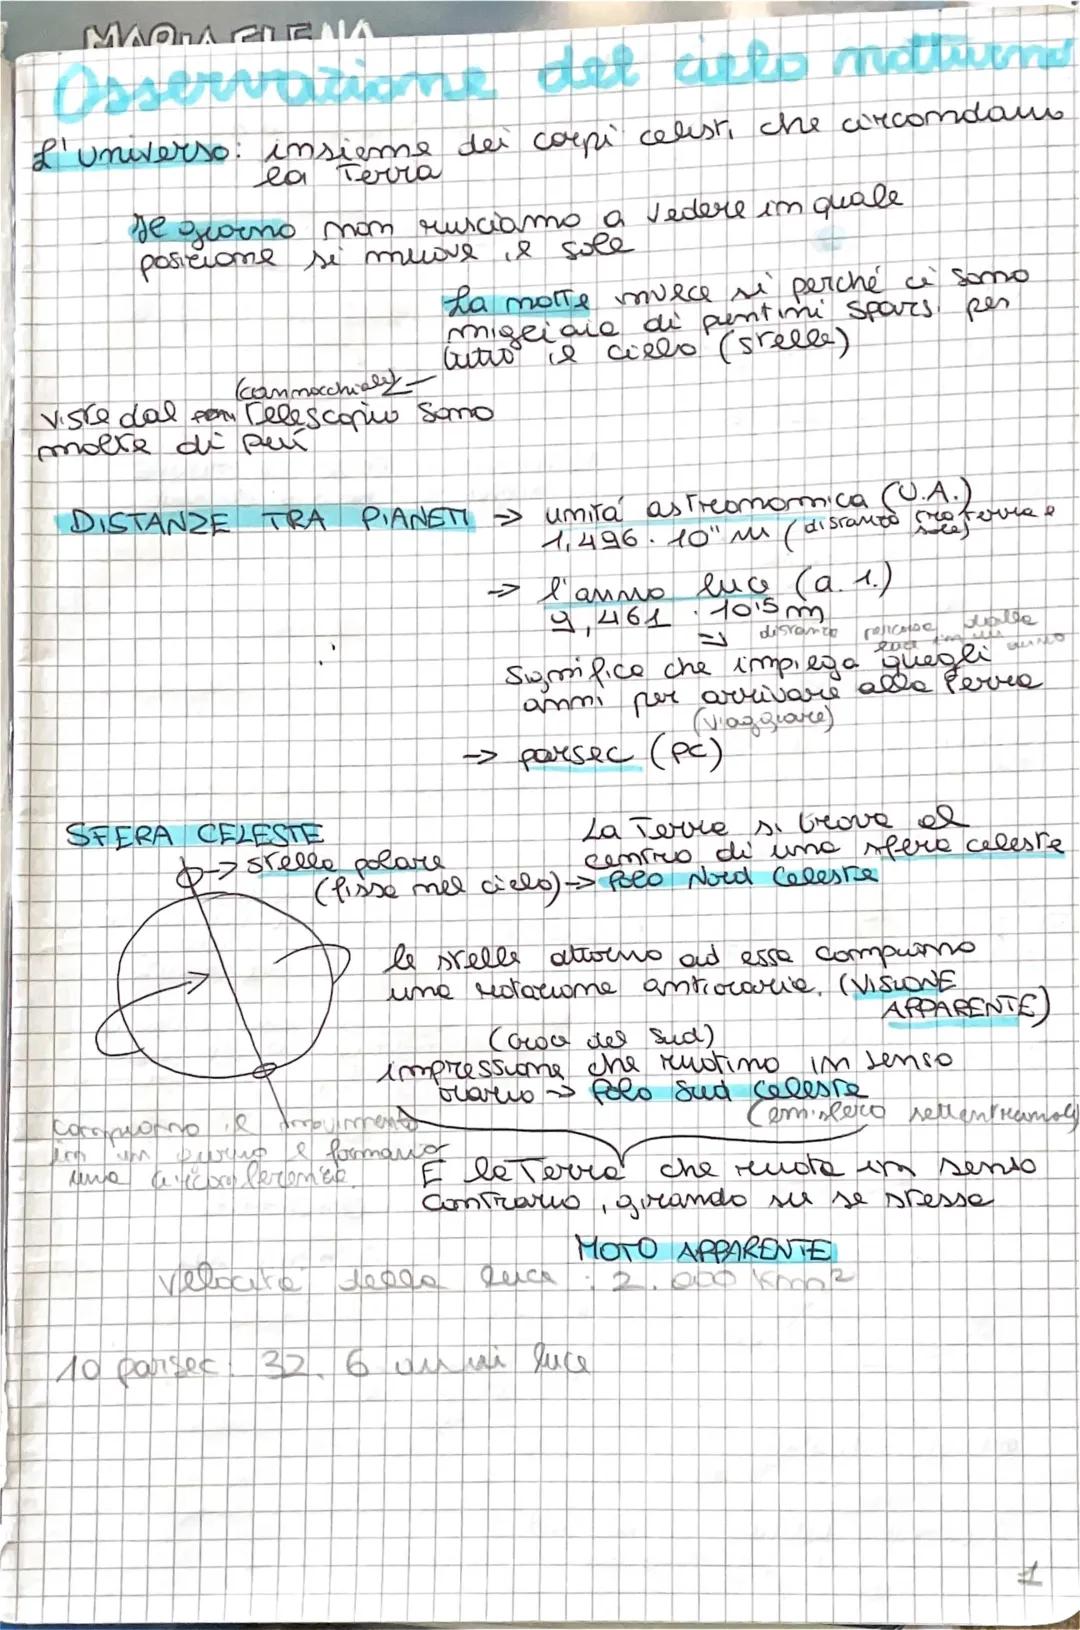 MARIA ELENA
Osservazione del cielo notturno
L'universo: insieme dei corpi celesti che circondano
la Terra
Il giorno non riusciamo a vedere in quale
posizione si muove il sole
La notte invece si perché ci sono
migliaia di puntini sparsi per
tutto il cielo (stelle)
(cannocchiale)
Viste dal Telescopio sono
molte di più
DISTANZE TRA PIANETI → unità astronomica (U.A.)
1,496 · 10¹¹ m (distanza tra terra e
sole)
→ l'anno luce (a. l.)
9,461 · 10¹⁵ m
⇒ distanza percorsa dalla
luce in un anno
Significa che impiega quegli
anni per arrivare alla Terra
(viaggiare)
→ parsec (pc)
SFERA CELESTE
La Terra si trova al
centro di una sfera celeste
→ stella polare
(fissa nel cielo) → Polo Nord Celeste
le stelle attorno ad essa compiono
una rotazione antioraria. (VISIONE
APPARENTE)
(croce del Sud)
impressione che ruotino in senso
orario → Polo Sud Celeste
(emisfero settentrionale)
compiono il movimento
in un giorno e formano
una circonferenza.
È la Terra che ruota in senso
contrario, girando su se stessa
MOTO APPARENTE
Velocità della luce : 2. 000 Km²
10 parsec: 32. 6 anni luce
1